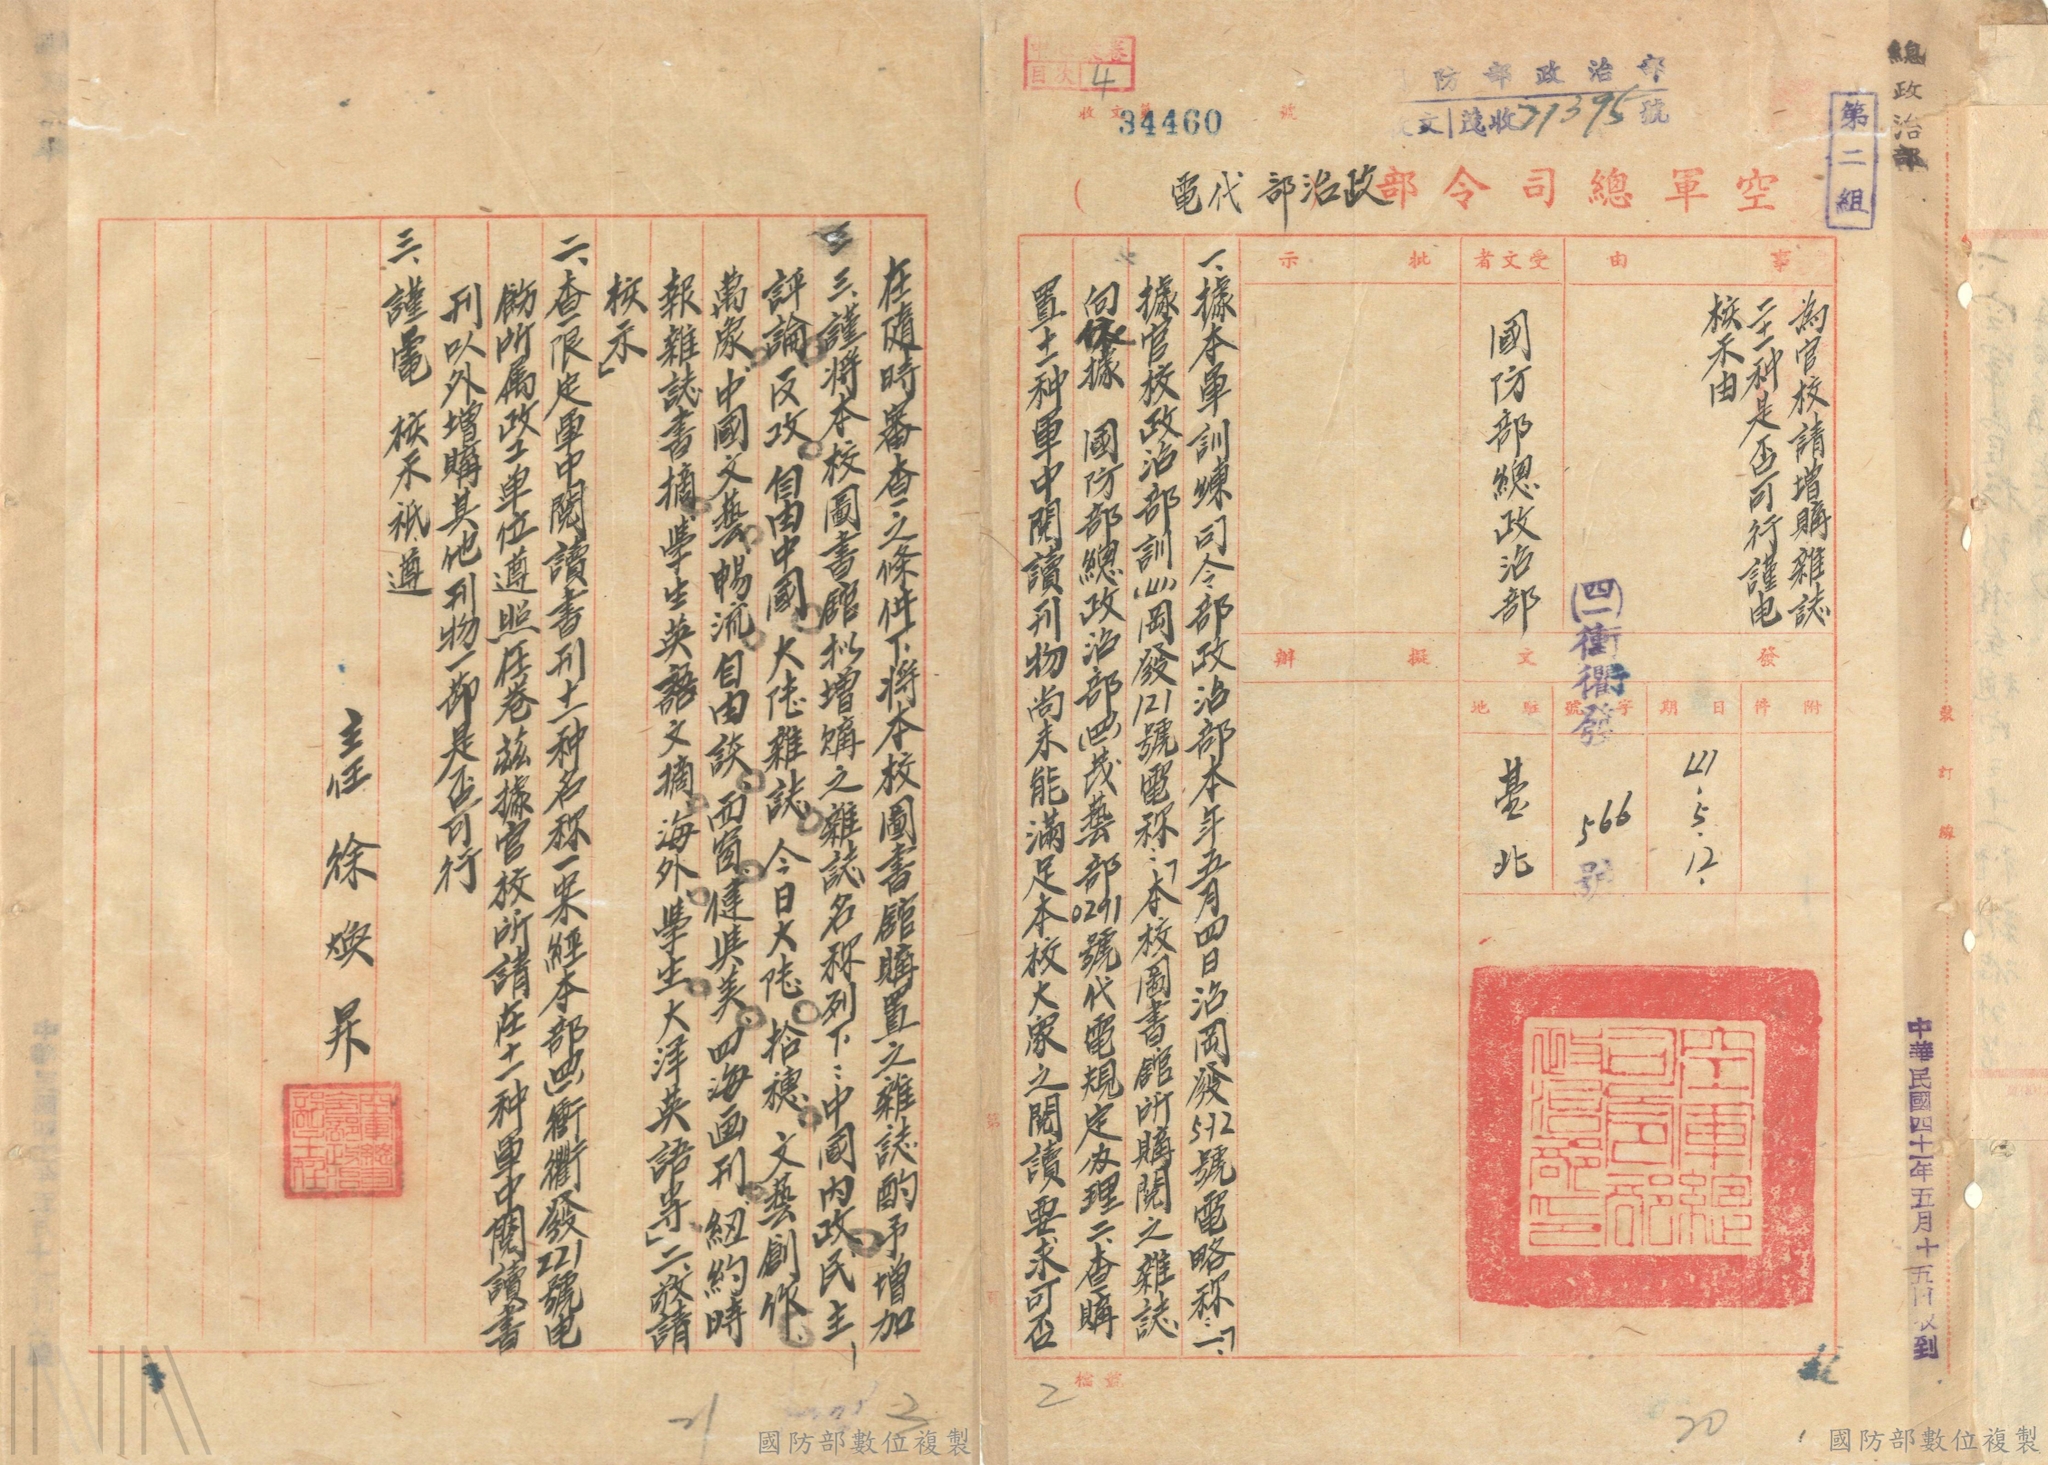 總政治部
第二組
防部政治部
收文 茂收31395號
收文 號
34460
目次
4
空軍總司令部政治部代電
事由
為官校請增購雜誌
二十一种是否可行謹电
核示由
受文者
國防部總政治部
批示
擬辦
發文
附件
日期
41.5.12.
字號
(四一)衝衢發
566
號
駐地
臺北
空軍總司令部政治部印
中華民國四十一年五月十五日收到
裝
訂
線
一、據本軍訓練司令部政治部本年五月四日治岡發572號電略称:「一、
據官校政治部訓(41)岡發121號電称:「本校圖書館所購閱之雜誌
向依據 國防部總政治部(四一)茂藝部0291號代電規定办理二、查購
置十一种軍中閱讀刊物尚未能滿足本校大家之閱讀要求可否
檔號
2
20
在隨時審查之條件下將本校圖書館購置之雜誌酌予增加
三、謹將本校圖書館拟增購之雜誌名称列下:中國內政民主
評論反攻自由中國大陸雜誌今日大陸拾穗文藝創作
萬象中國文藝暢流自由談西窗健與美四海画刊紐約時
報雜誌書摘學生英語文摘海外學生大洋英語等」二、敬請
核示」
二、查限定軍中閱讀書刊十一种名称一案經本部(四一)衝衢發221號电
飭所属政工单位遵照在卷茲據官校所請在十一种軍中閱讀書
刊以外增購其他刊物一節是否可行
三、謹電 核示祇遵
主任 徐煥昇
21
國防部數位複製
國防部數位複製